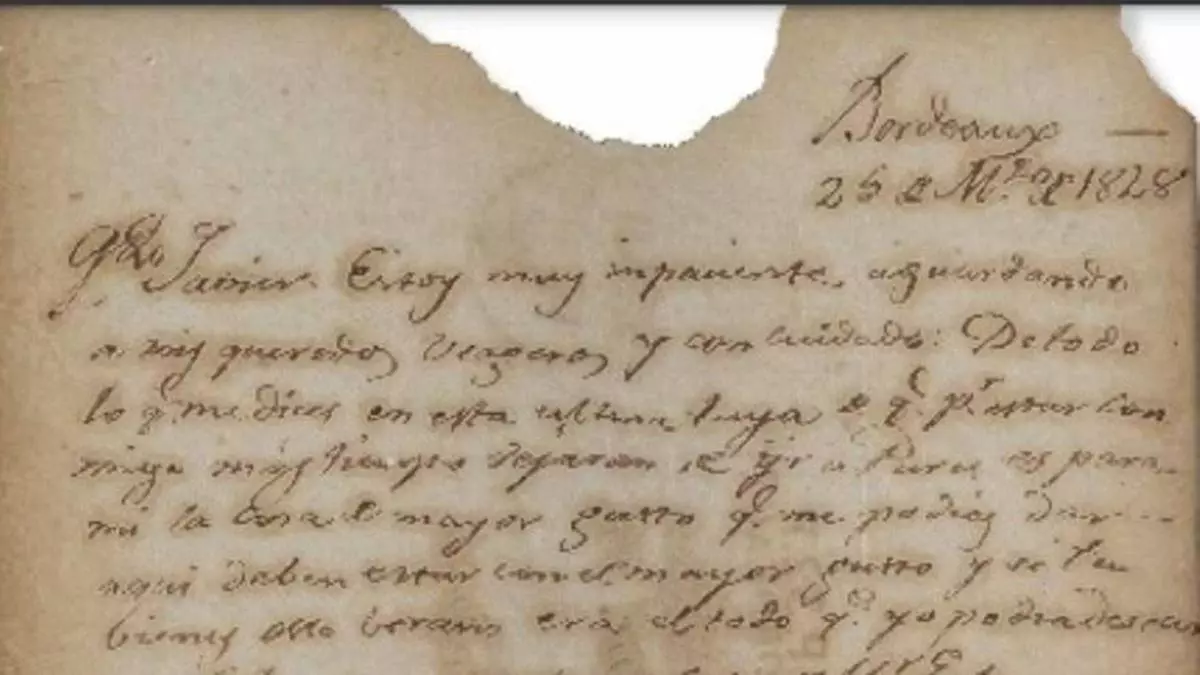 Bordeaux —
26 de Mzo de 1828
Qdo Javier. Estoy muy inpaciente, aguardando
a mis queredos vegeros y con cuidado: De todo
lo q.e me dices en esta ultima tuya de q.e p.r estar con
migo mas tienpo dejaran de yr a Paris es para
mi la cosa de mayor gusto q.e me podias dar
aqui deben estar con el mayor gusto y si tu
bienes este berano era el todo q.e yo podia desear